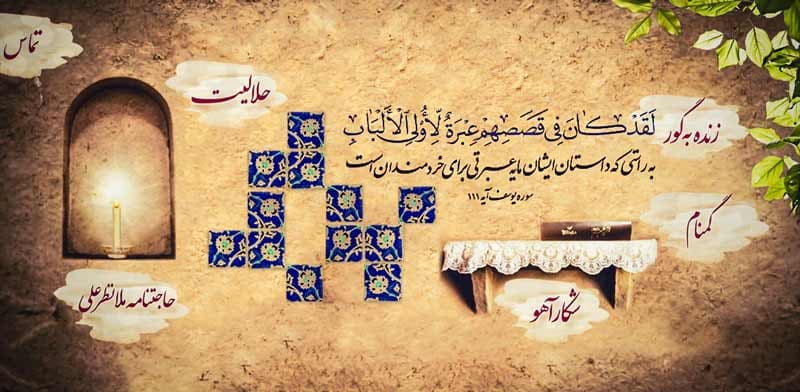 تماس
حلالیت
لَقَدْ كَانَ فِي قَصَصِهِمْ عِبْرَةٌ لِّأُولِي الْأَلْبَابِ
به راستی که داستان ایشان مایه عبرتی برای خردمندان است
سوره یوسف آیه ۱۱۱
زنده به گور
گمنام
شکار آهو
حاجتنامه ملا نظر علی